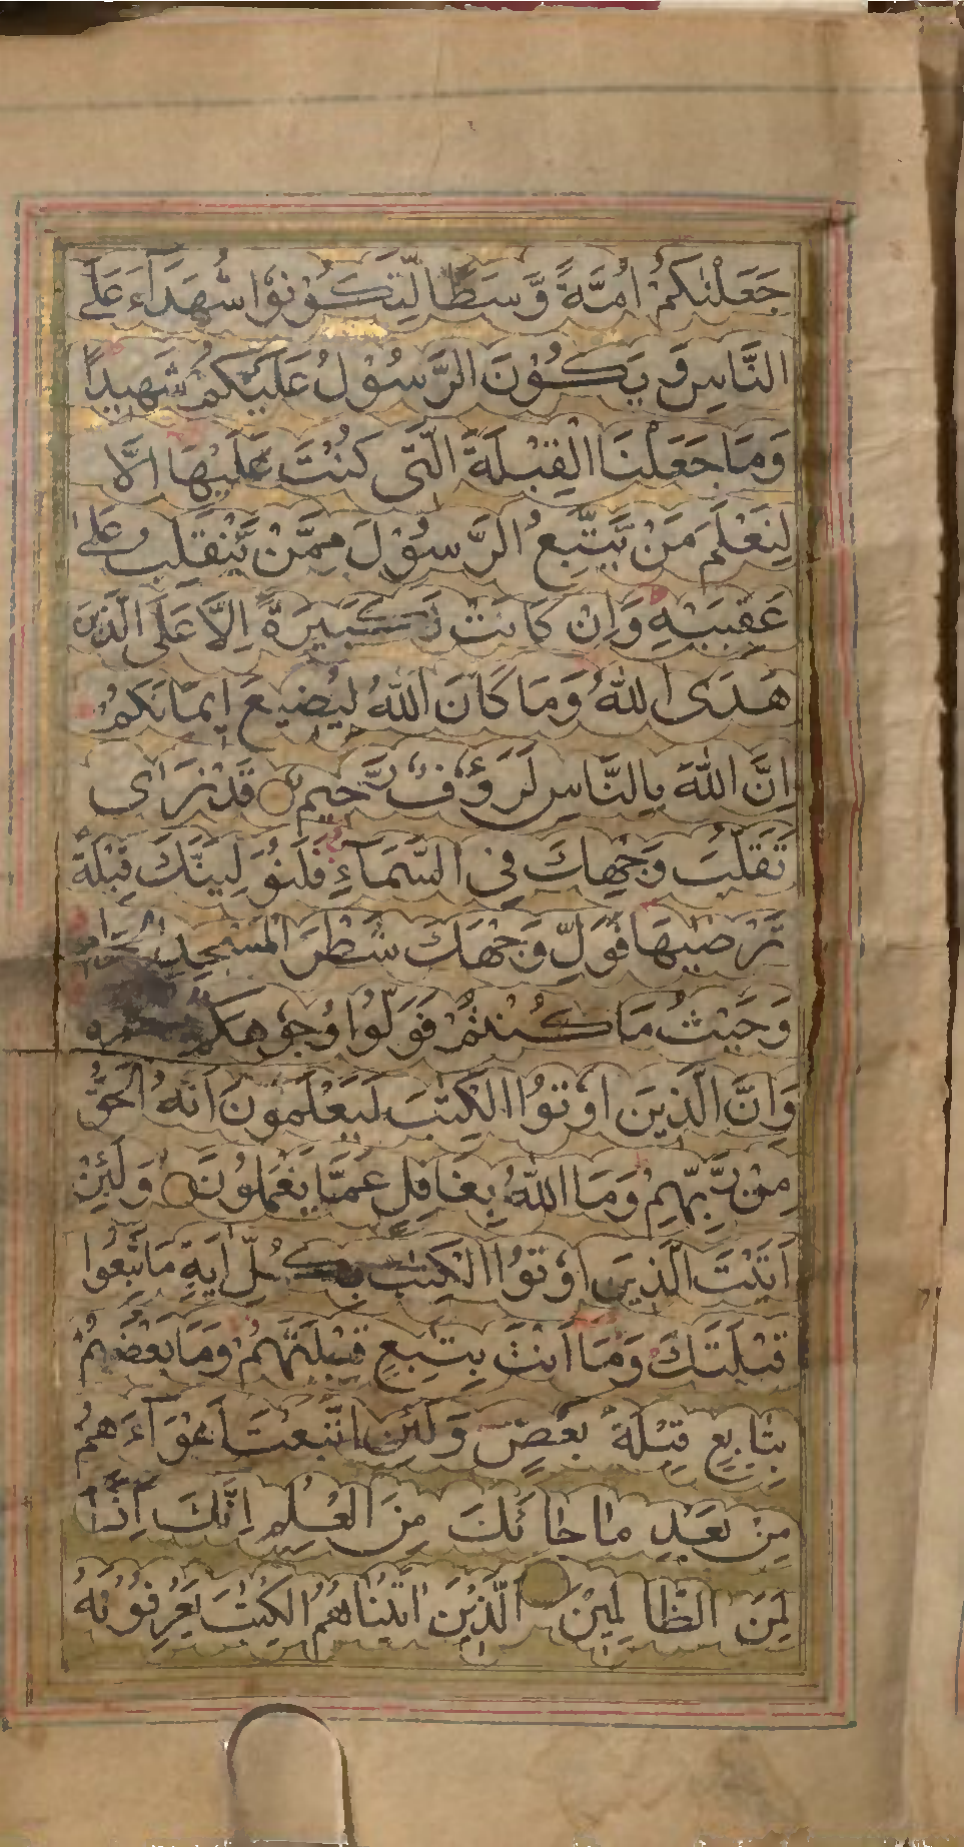 جَعَلْنٰكُمْ اُمَّةً وَّسَطًا لِّتَكُوْنُوْا شُهَدَآءَ عَلَى
النَّاسِ وَ يَكُوْنَ الرَّسُوْلُ عَلَيْكُمْ شَهِيْدًا
وَمَا جَعَلْنَا الْقِبْلَةَ الَّتِى كُنْتَ عَلَيْهَا اِلَّا
لِنَعْلَمَ مَنْ يَّتَّبِعُ الرَّسُوْلَ مِمَّنْ يَّنْقَلِبُ عَلٰى
عَقِبَيْهِ وَاِنْ كَانَتْ لَكَبِيْرَةً اِلَّا عَلَى الَّذِيْنَ
هَدَى اللّٰهُ وَمَا كَانَ اللّٰهُ لِيُضِيْعَ اِيْمَانَكُمْ
اِنَّ اللّٰهَ بِالنَّاسِ لَرَءُوْفٌ رَّحِيْمٌ قَدْ نَرٰى
تَقَلُّبَ وَجْهِكَ فِى السَّمَآءِ فَلَنُوَلِّيَنَّكَ قِبْلَةً
تَرْضٰيهَا فَوَلِّ وَجْهَكَ شَطْرَ الْمَسْجِدِ الْحَرَامِ
وَحَيْثُ مَا كُنْتُمْ فَوَلُّوْا وُجُوْهَكُمْ شَطْرَهُ
وَاِنَّ الَّذِيْنَ اُوْتُوا الْكِتٰبَ لَيَعْلَمُوْنَ اَنَّهُ الْحَقُّ
مِنْ رَّبِّهِمْ وَمَا اللّٰهُ بِغَافِلٍ عَمَّا يَعْمَلُوْنَ وَلَئِنْ
اَتَيْتَ الَّذِيْنَ اُوْتُوا الْكِتٰبَ بِكُلِّ اٰيَةٍ مَا تَبِعُوْا
قِبْلَتَكَ وَمَا اَنْتَ بِتَابِعٍ قِبْلَتَهُمْ وَمَا بَعْضُهُمْ
بِتَابِعٍ قِبْلَةَ بَعْضٍ وَلَئِنِ اتَّبَعْتَ اَهْوَآءَهُمْ
مِنْ بَعْدِ مَا جَائَكَ مِنَ الْعِلْمِ اِنَّكَ اِذًا
لَمِنَ الظَّالِمِيْنَ الَّذِيْنَ اٰتَيْنَاهُمُ الْكِتٰبَ يَعْرِفُوْنَهُ